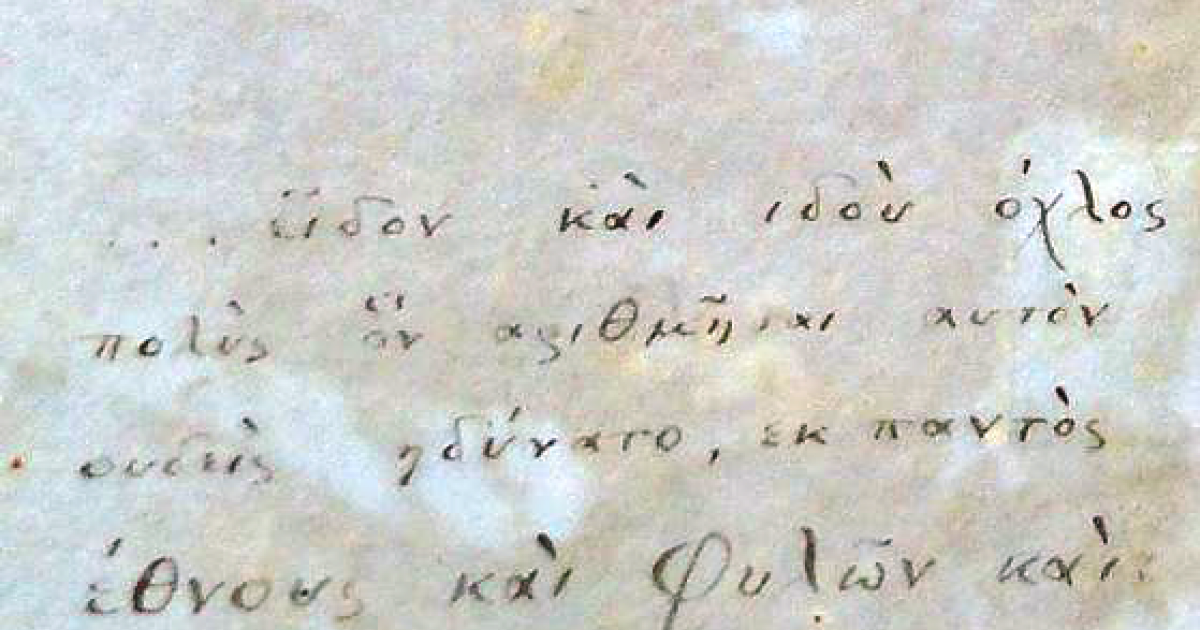 ... εἵδον κὰι ιδοὺ όχλος
πολὺς ὅν αριθμῆσαι αυτὸν
ουδεὶς ηδύνατο, εκ παντὸς
έθνους κὰι φυλῶν κὰι